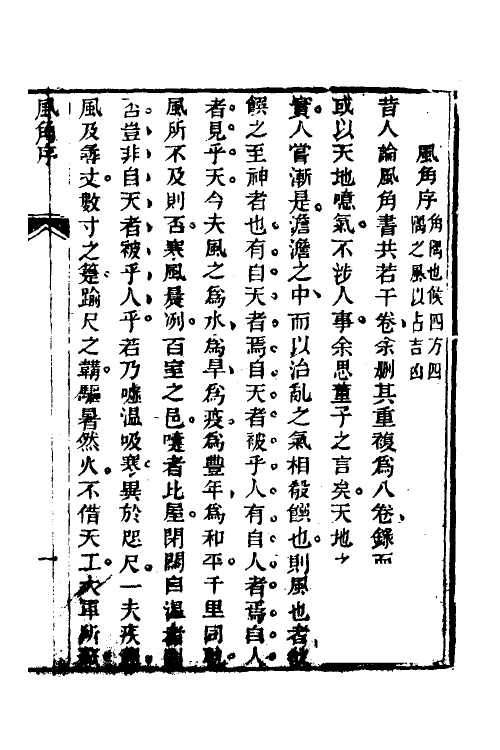 風角序角隅也候四方四隅之風以占吉凶
昔人論風角書共若干卷余刪其重複爲八卷錄而
或以天地噫氣不涉人事余思董子之言矣天地之
實人嘗漸是澹澹之中而以治亂之氣相殽饌也則風也者
饌之至神者也有自天者焉自天者被乎人有自人者焉自人
者見乎天今夫風之爲水爲旱爲疫爲豐年爲和平千里同
風所不及則否寒風晨冽百室之邑嚏者比屋閉閤自溫者
否豈非自天者被乎人乎若乃噓溫吸寒異於咫尺一夫疾
風及尋丈數寸之箑踰尺之韛驅暑然火不借天工大軍所
風角序
一